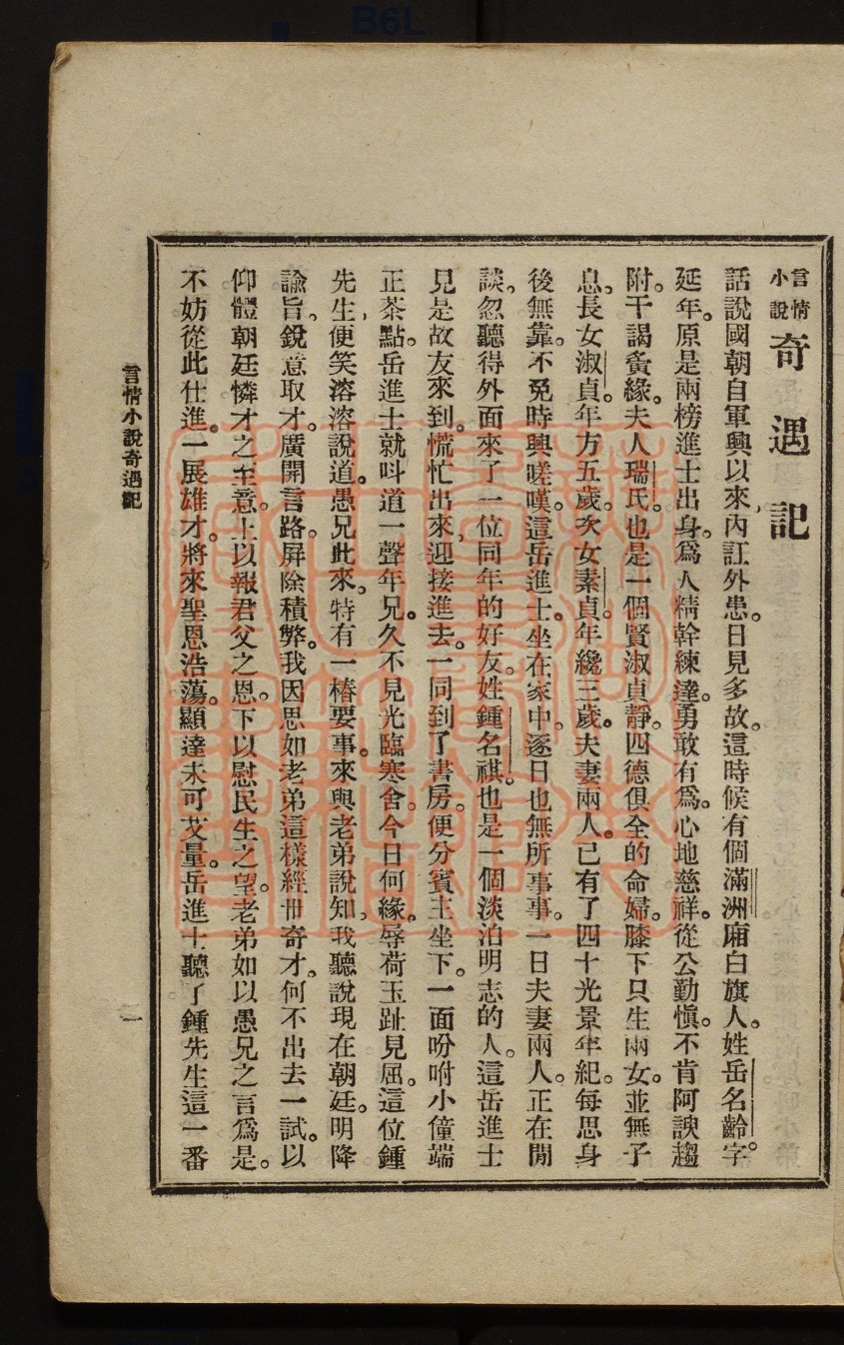 言情小說 奇遇記
話說國朝自軍興以來、內訌外患。日見多故。這時候有個滿洲廂白旗人。姓岳名齡。字
延年。原是兩榜進士出身。爲人精幹練達。勇敢有爲。心地慈祥。從公勤慎。不肯阿諛趨
附。干謁夤緣。夫人瑞氏。也是一個賢淑貞靜。四德俱全的命婦。膝下只生兩女。並無子
息。長女淑貞。年方五歲。次女素貞。年纔三歲。夫妻兩人。已有了四十光景年紀。每思身
後無靠。不免時興嗟嘆。這岳進士。坐在家中。逐日也無所事事。一日夫妻兩人。正在閒
談。忽聽得外面來了一位同年的好友。姓鍾名祺。也是一個淡泊明志的人。這岳進士
見是故友來到。慌忙出來、迎接進去。一同到了書房。便分賓主坐下。一面吩咐小僮端
正茶點。岳進士就呌道一聲年兄。久不見光臨寒舍。今日何緣。辱荷玉趾見屈。這位鍾
先生、便笑溶溶說道。愚兄此來。特有一樁要事。來與老弟說知、我聽說現在朝廷。明降
諭旨。銳意取才。廣開言路。屏除積弊。我因思如老弟這樣經世奇才。何不出去一試。以
仰體朝廷憐才之至意。上以報君父之恩。下以慰民生之望。老弟如以愚兄之言爲是。
不妨從此仕進。一展雄才。將來聖恩浩蕩。顯達未可艾量。岳進士聽了鍾先生這一番
言情小說奇遇記
B6L